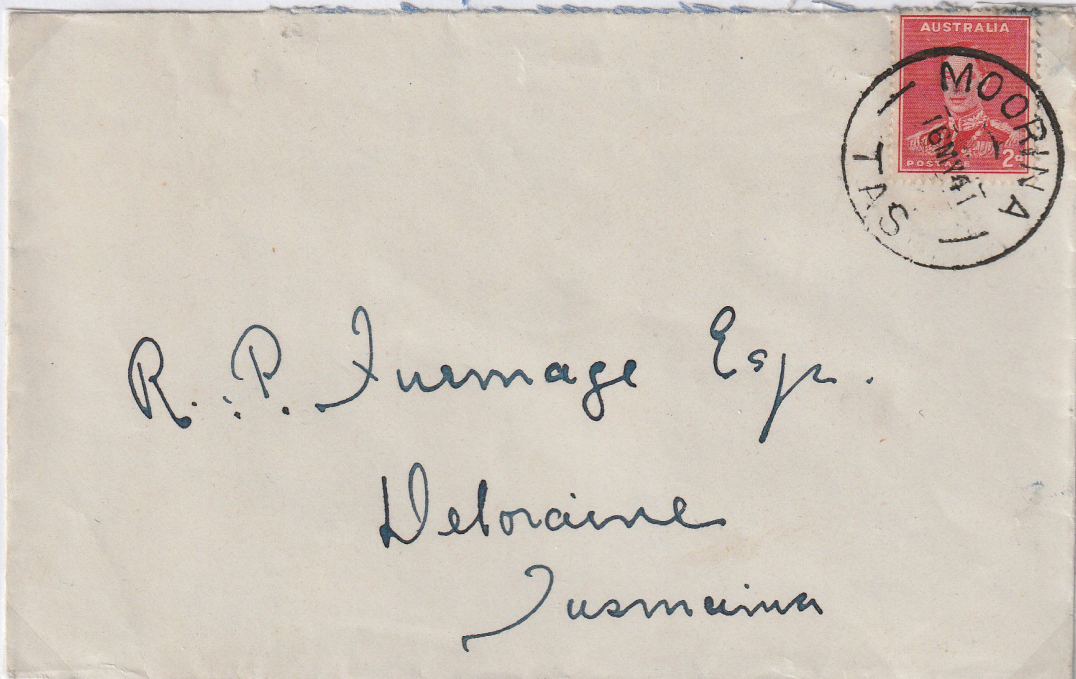 AUSTRALIA
POSTAGE 2D
MOORINA
16 MY 41
TAS
R. P. Furmage Esq.
Deloraine
Tasmania